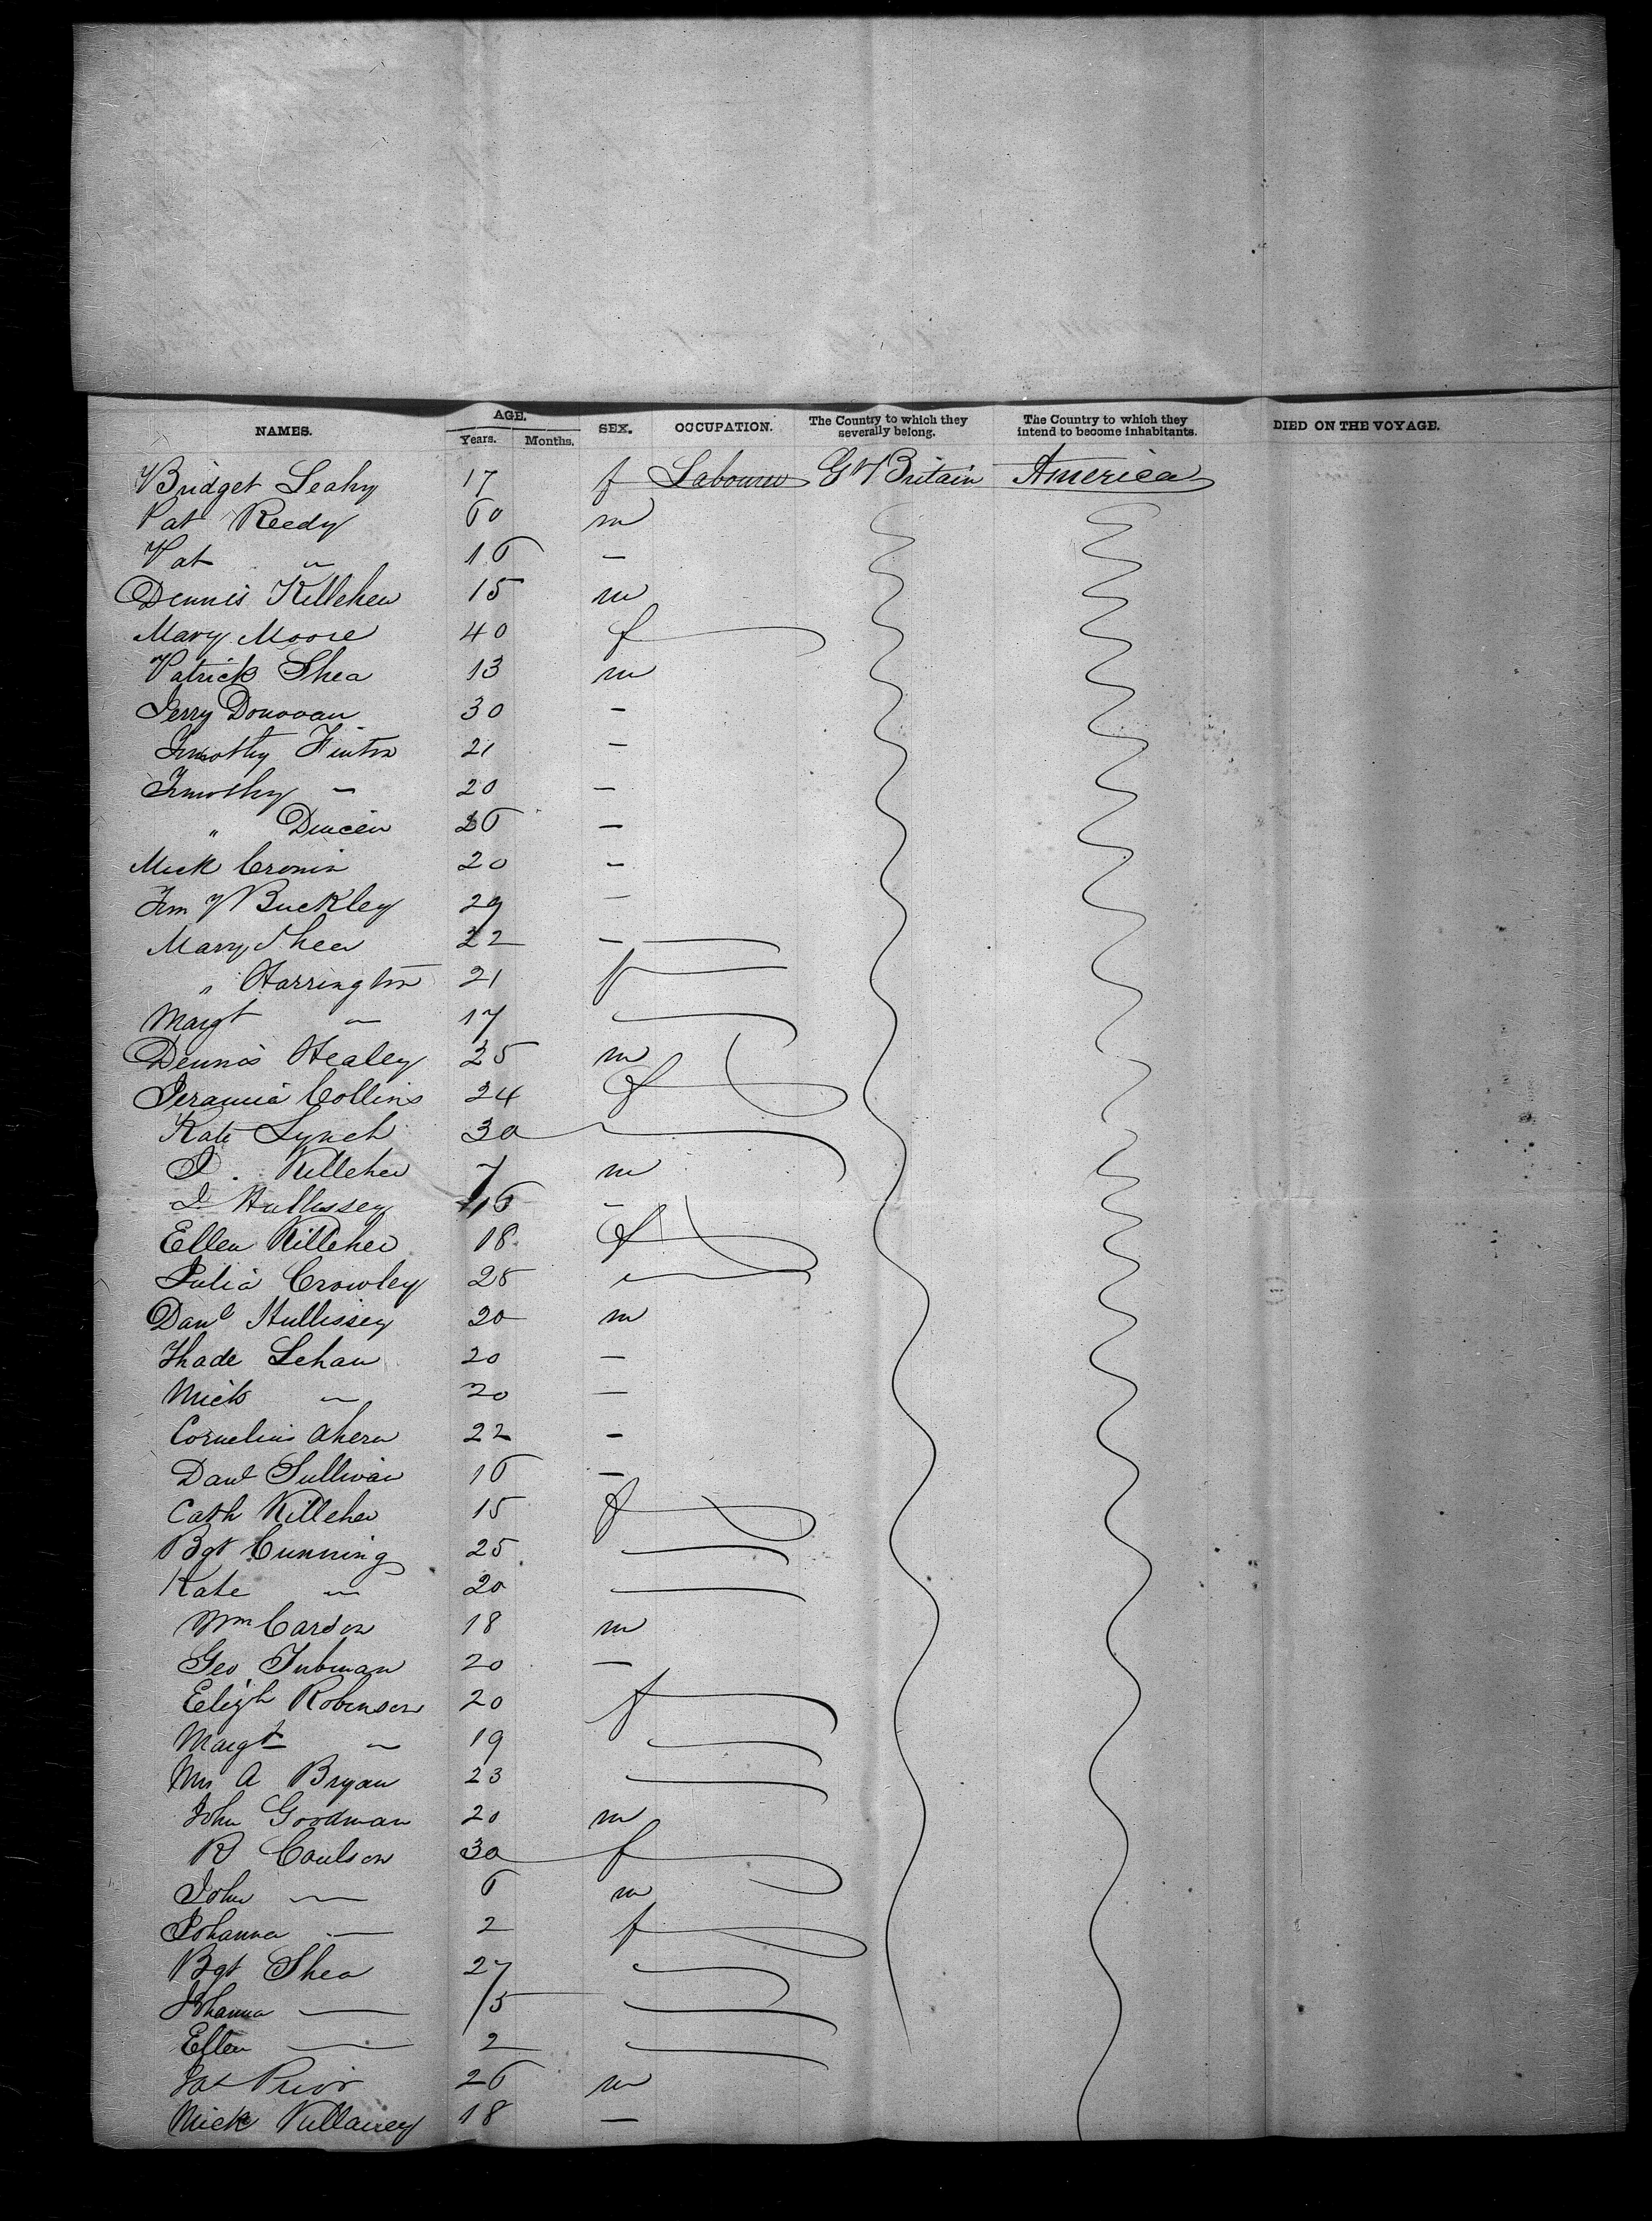 NAMES. AGE. SEX. OCCUPATION. The Country to which they severally belong. The Country to which they intend to become inhabitants. DIED ON THE VOYAGE.
Years. Months.
Bridget Leahy 17 f Labourer Gt Britain America
Pat Reedy 60 m
Pat " 16 —
Dennis Killeher 15 m
Mary Moore 40 f
Patrick Shea 13 m
Jerry Donovan 30 —
Timothy Finton 21 —
Timothy " 20 —
" 26 —
Mick Cronin 20 —
Timy Buckley 29 —
Mary Shea 22 —
" Harrington 21 f
Margt " 17
Dennis Healey 25 m
Jeramia Collins 24 f
Kate Lynch 30
J. Killeher 7 m
J Hullissey 16 —
Ellen Killeher 18 f
Julia Crowley 25
Danl Hullissey 20 m
Thade Lehan 20 —
Mick " 20 —
Cornelius Ahern 22 —
Danl Sullivan 16 —
Cath Killeher 15 f
Bgt Cunning 25
Kate " 20
Wm Cardon 18 m
Geo Tubman 20 —
Elizh Robinson 20 f
Margt " 19
Mrs A Bryan 23
John Goodman 20 m
R Coulson 30 f
John — 6 m
Johanna — 2 f
Bgt Shea 27
Johanna — 5
Ellen — 2
Jas Prior 26 m
Mick Killaney 18 —